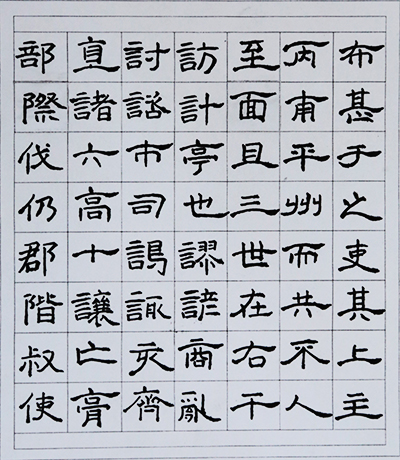 布甚于之吏其上主
丙甫平州而共不人
至面且三世在右干
訪計亭也謬諺商亂
討話市司諏亥齊
直諸六高十讓亡膏
部際伐仍郡階叔使